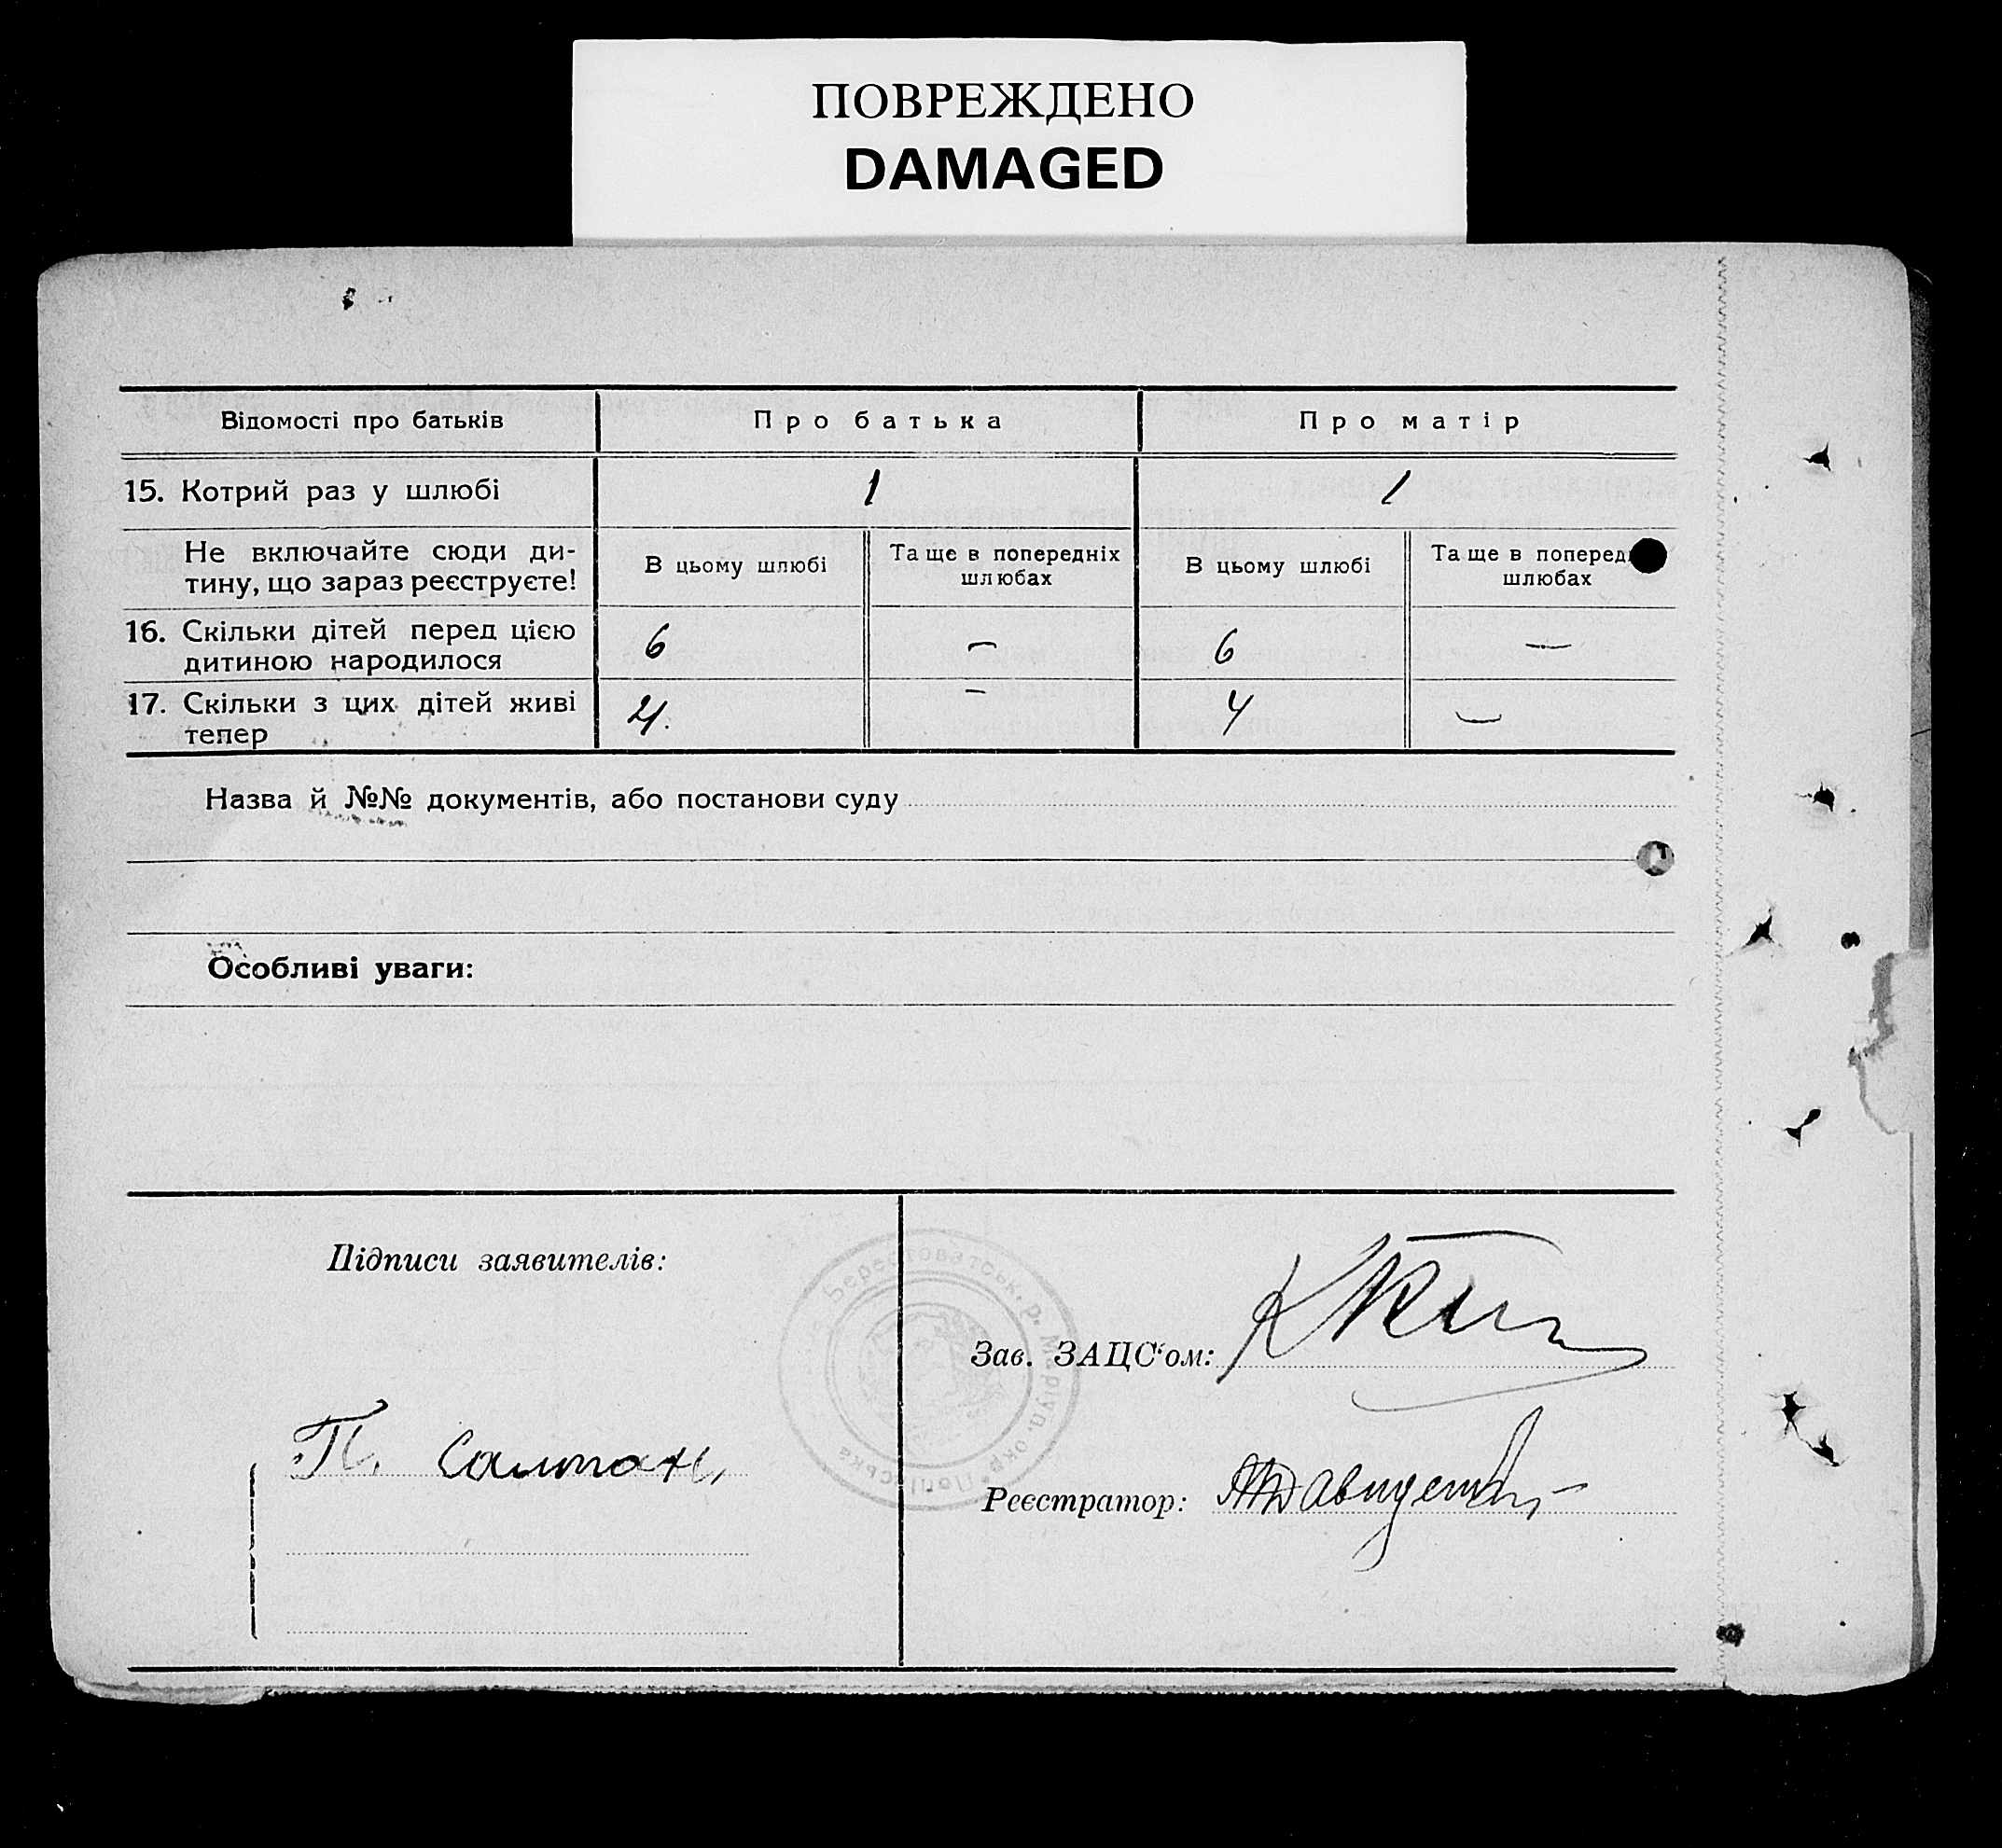 ПОВРЕЖДЕНО
DAMAGED
Відомості про батьків
Про батька
Про матір
15. Котрий раз у шлюбі
1
1
Не включайте сюди ди-
тину, що зараз реєструєте!
В цьому шлюбі
Та ще в попередніх
шлюбах
В цьому шлюбі
Та ще в поперед
шлюбах
16. Скільки дітей перед цією
дитиною народилося
6
—
6
—
17. Скільки з цих дітей живі
тепер
4.
-
4
—
Назва й №№ документів, або постанови суду
Особливі уваги:
Підписи заявителів:
Берестоватськ. р. Маріуп. окр.
Зав. ЗАЦС‘ом:
П. Салтан
Реєстратор: